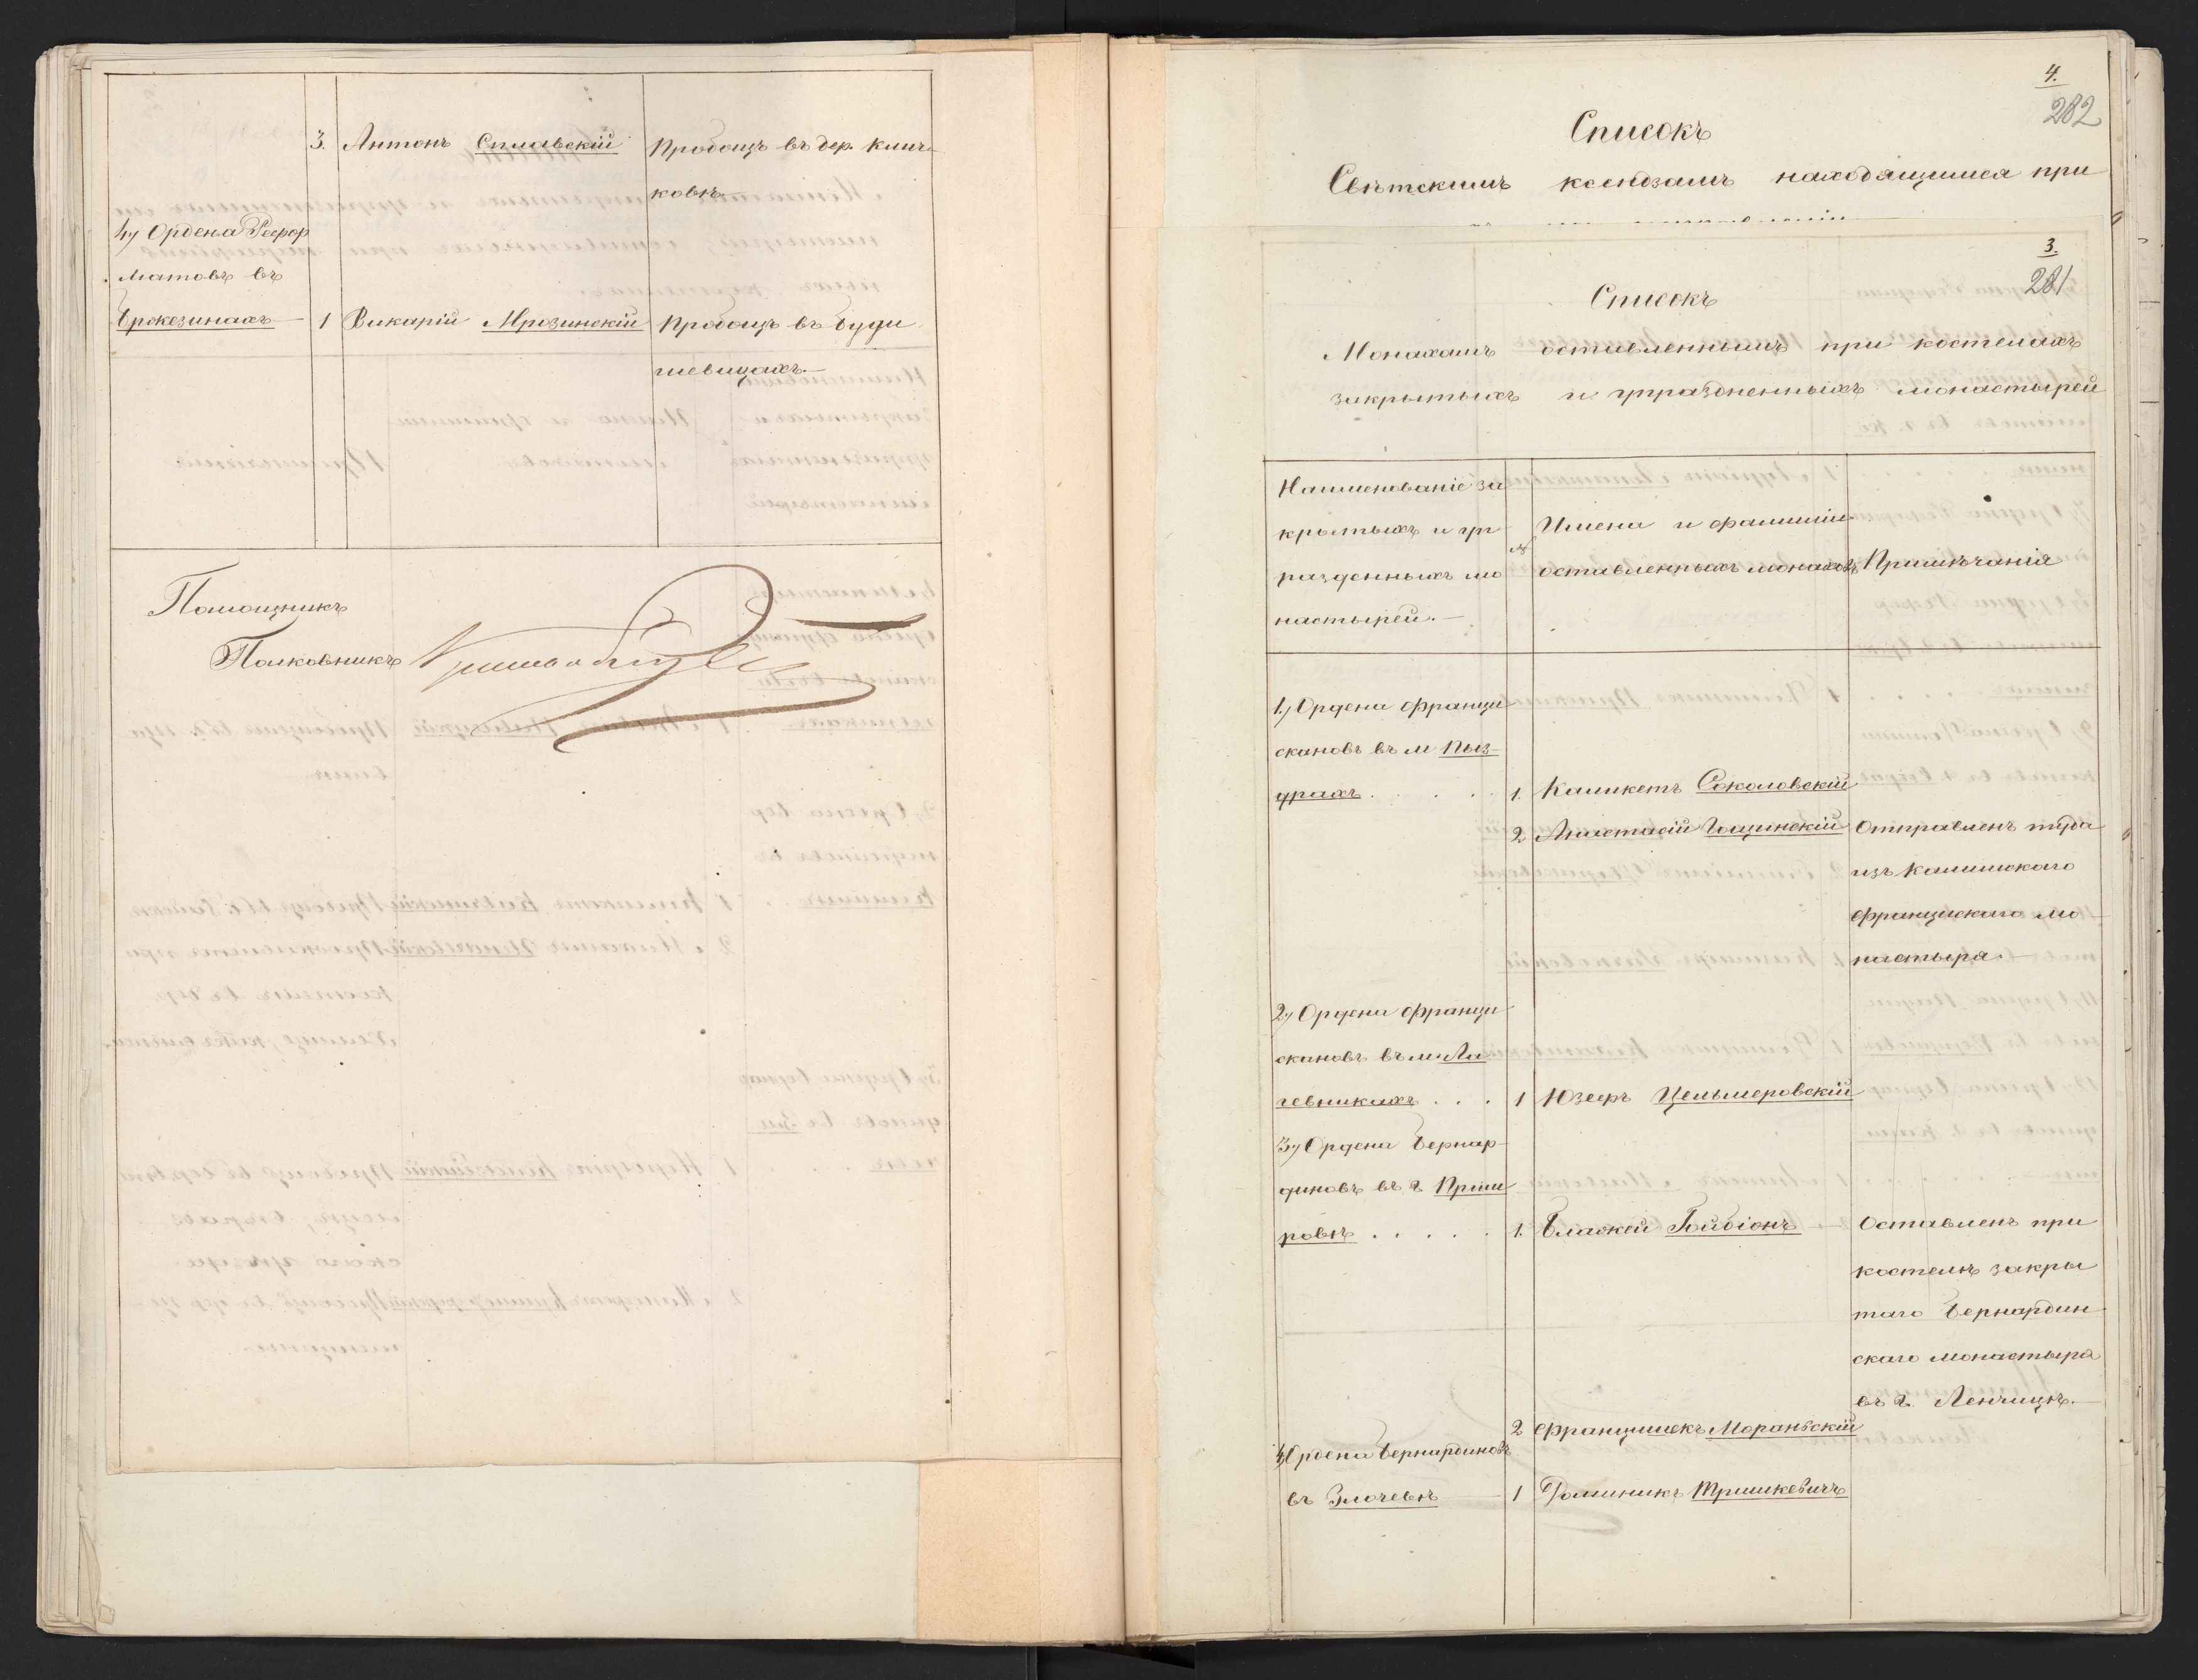 3. Антонъ Сплавскій Пробощъ въ дер. Клич-
ковѣ.—
4, Ордена Рефор
матовъ въ
Бржезинахъ — 1 Викарій Мрозинскій Пробощъ въ Буди
шевицахъ.—
Помощникъ
Полковникъ
4.
282
Списокъ
Свѣтскимъ ксендзамъ находящимся при
3.
281
Списокъ
Монахамъ оставленнымъ при костелахъ
закрытыхъ и упраздненныхъ монастырей
Наименованіе за
крытыхъ и уп
раздненныхъ мо
настырей.—
№
Имена и фамиліи
оставленныхъ монаховъ
Примѣчанія
1, Ордена Франци
скановъ въ м Пыз-
драхъ . . . . 1. Камикетъ Соколовскій
2 Анастасій Гощинскій Отправленъ туда
изъ Калишскаго
Францискаго мо
настыря.—
2, Ордена Франци
скановъ въ м. Ла
гевникахъ . . . 1 Юзефъ Цельмеровскій
3, Ордена Бернар-
диновъ въ г Петро
ковѣ . . . . . 1. Блажей Гойдіонъ — Оставленъ при
костелѣ закры
таго Бернардин
скаго монастыря
въ г. Ленчицѣ.—
2 Францишекъ Моравскій
4, Ордена Бернардиновъ
въ Злочевѣ — 1 Доминикъ Тришкевичъ